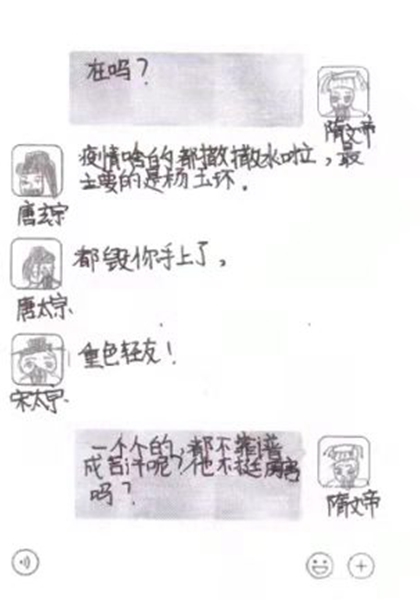 在吗？
隋文帝
疫情啥的都撒撒水啦，最
主要的是杨玉环。
唐玄宗
都毁你手上了。
唐太宗
重色轻友！
宋太宗
一个个的，都不靠谱
成吉汗呢？他不挺厉害
吗？
隋文帝